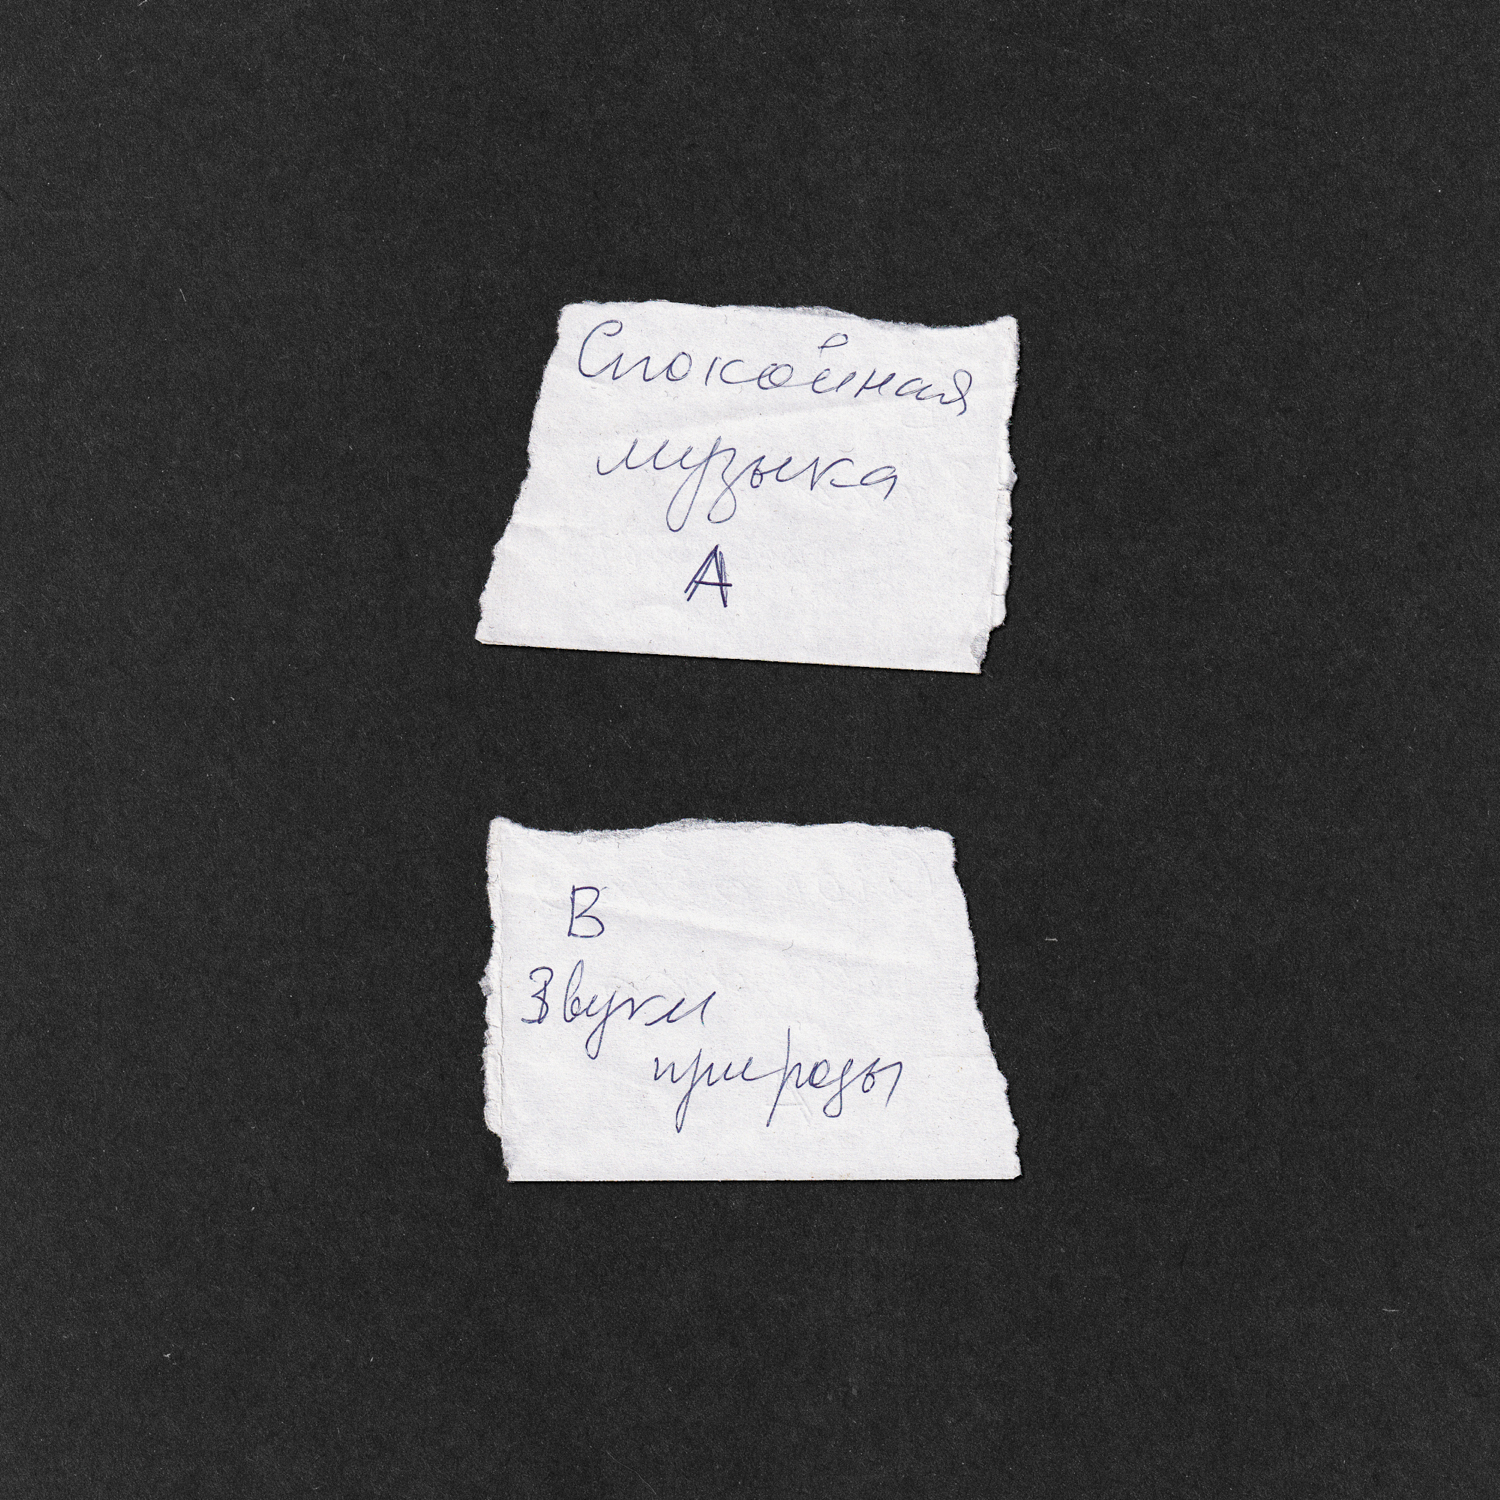 Спокойная
музыка
А
В
Звуки
природы